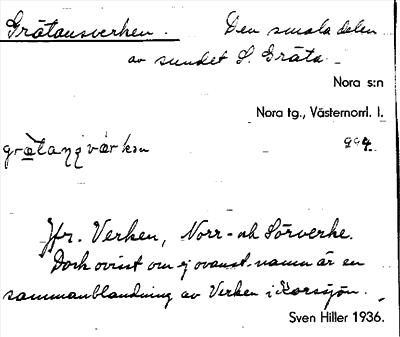 Gråtansverken. Den smala delen
av sundet S. Gråta.
Nora s:n
Nora tg., Västernorrl. l.
994.
Jfr. Verken, Norr- och Sörverke.
Dock ovisst om ej ovanst. namn är en
sammanblandning av Verken i Korssjön.
Sven Hiller 1936.